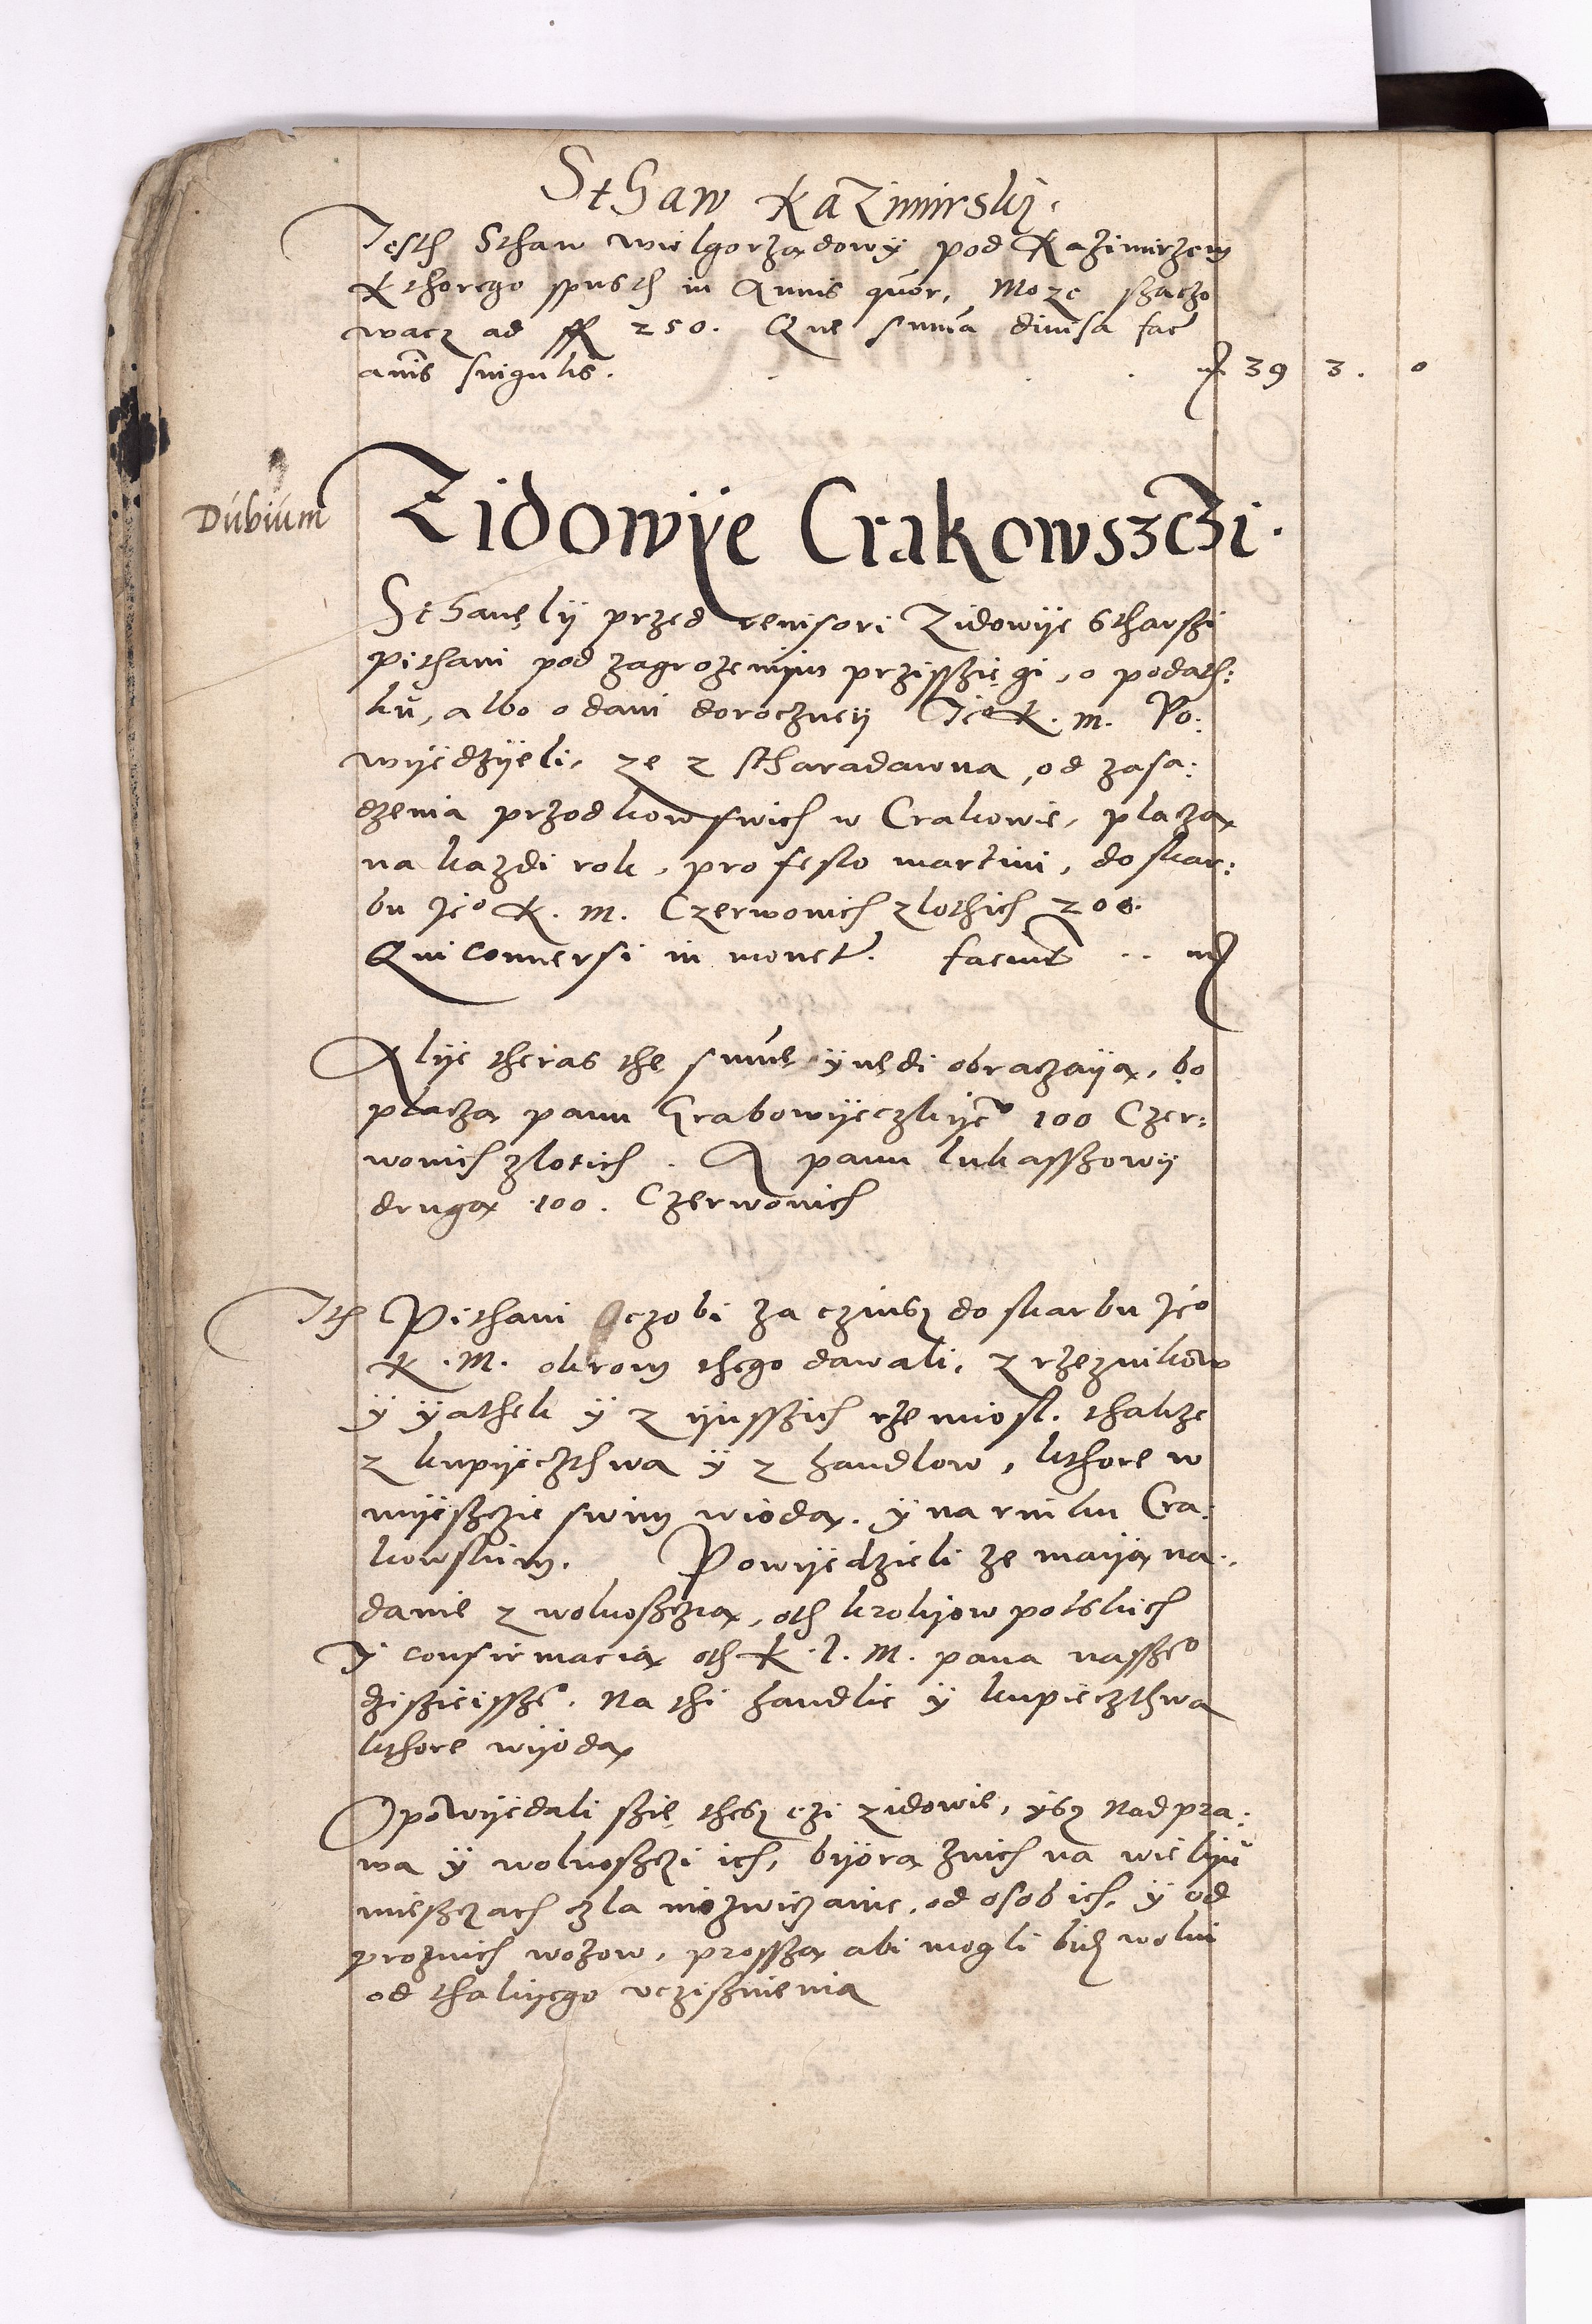 Sthaw Kazimirskÿ.
Jesth Sthaw wielgorządowy pod Kazimirzem
Kthorego spusth in Annis quor, Moze szaczo
wacz ad fl 250. Que summa divisa fac
annis singulis. m 39 3. 0
Dubium
Zidowÿe Crakowszczi.
Sthanęlÿ przed revisori Zidowÿe Stharszi
Pithani pod zagrozenijm przÿsszięgi, o podath:
ku, albo o dani doroczneÿ Jeº K. M. Po:
wÿedzÿeli, ze z stharadawna, od zasa:
dzenia przodkow swich w Crakowie, placzą
na kazdi rok, pro festo martini, do skar:
bu Jeº K. M. Czerwonich zlothich 200.
Qui conversi in monet. faciunt .. m
Alÿe theras the summę ÿnędi obraczaÿą, bo
placzą panu Grabowÿeczkÿeº 100 Czer:
wonich zlotich. A panu lukasszowÿ
drugą 100. Czerwonich
Ith Pithani czobi za czinsz do skarbu Jeº
K. M. okrom thego dawali, z rzeznikow
ÿ ÿathek ÿ z ÿnsszich rzemiosl. thakze
z kupÿeczthwa ÿ z handlow, kthore w
mÿesczie swim wiodą. ÿ na rinku Cra:
kowskim. Powÿedzieli ze maÿą na:
danie z wolnosczią, oth krolyow polskich
Y confirmacią oth K. J. M. pana nasszeº
dzisziejszeº. Na thi handlie ÿ kupieczthwa
kthore wÿodą
Opowÿedali szię thesz czi zidowie, ÿsz nad pra:
wa ÿ wolnosczi ich, bÿorą znich na wielÿu
miesczach czla niezwiczaine, od osob ich, ÿ od
proznich wozow, prosszą abi mogli bicz wolni
od thakÿego ucziszniena